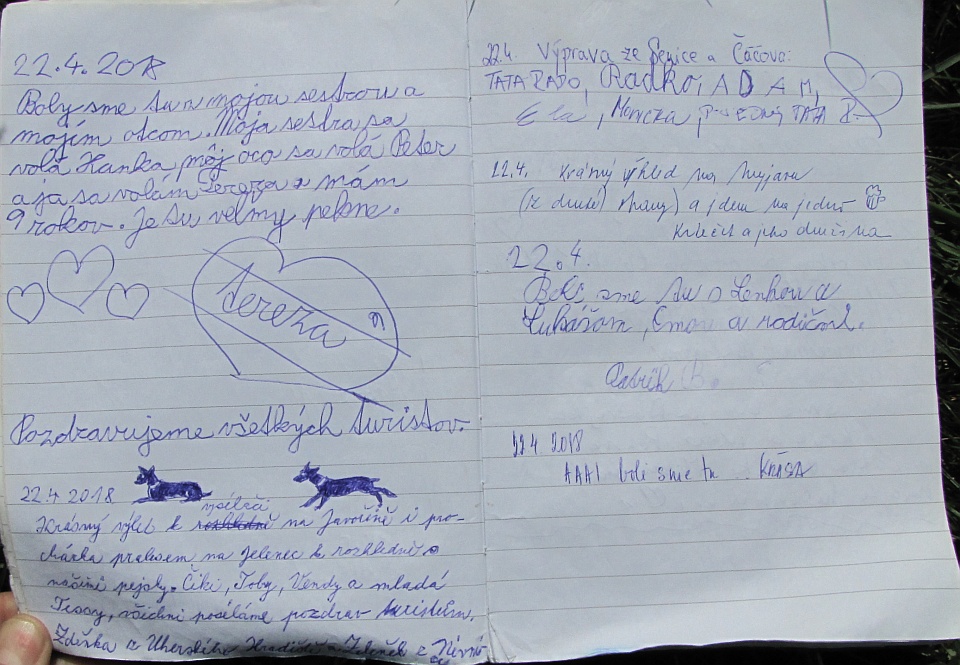 22.4.2018
Boly sme tu s mojou sestrou a
mojím otcom. Moja sestra sa
volá Hanka, môj oco sa volá Peter
a ja sa volám Tereza a mám
9 rokov. Je tu velmy pekne.
tereza
Pozdravujeme všetkých turistov.
22.4 2018
vysílači
Krásný výlet k rozhledně na Javořině i pro-
cházka pralesem na Jelenec k rozhledně s
našimi pejsky. Čiki, Toby, Vendy a mladá
Tessy, všichni posíláme pozdrav turistům.
Zdeňka z Uherského Hradiště a Zdeněk z Nivni-
ce
22.4. Výprava ze Senice a Čáčova:
TATA RADO, Radko, ADAM,
Ela, TATA
22.4. Krásný výhled na Myjavu
(z druhé strany) a jdem na jedno
a jeho
22.4.
Boli sme tu s Lenkou a
Lukášom, Emou a rodičmi.
Patrik
22.4 2018
AAAI boli sme tu .. KRÁSA